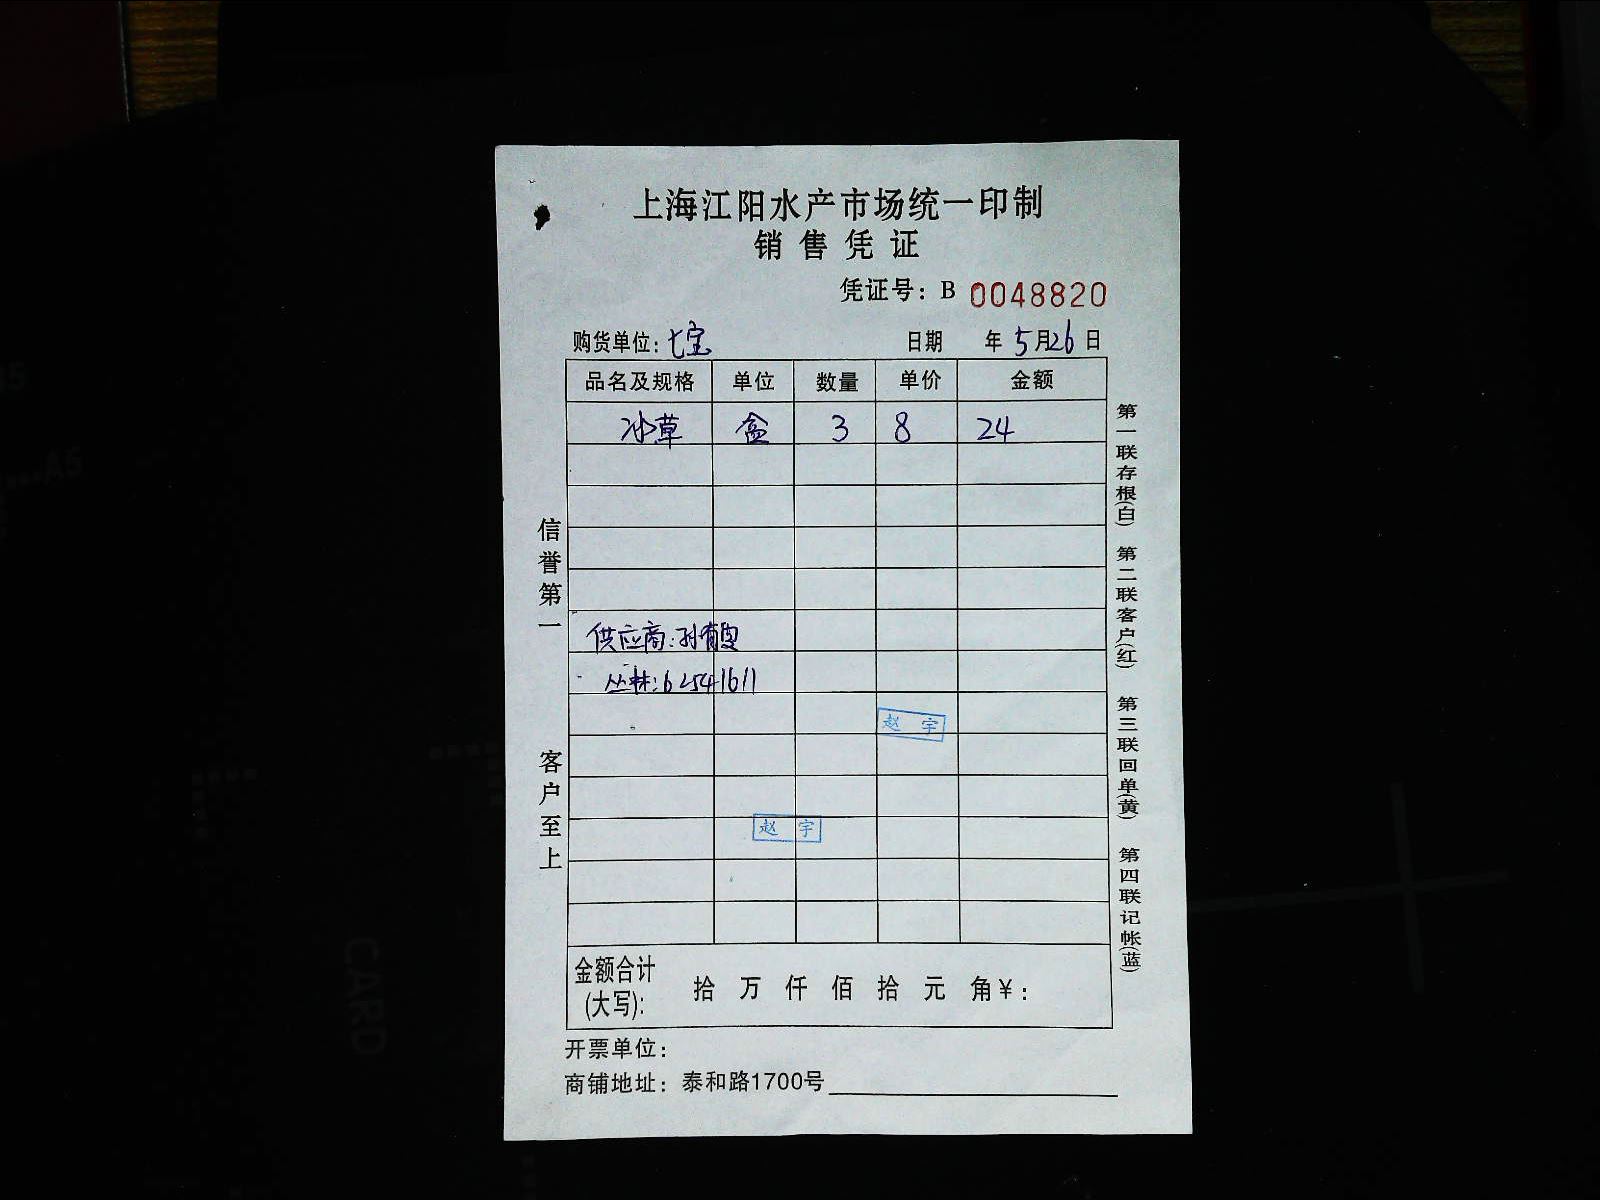 上海江阳水产市场统一印制
销售凭证
凭证号：B 0048820
购货单位：七宝 日期 年5月26日
品名及规格 单位 数量 单价 金额
冰草 盒 3 8 24
供应商：孙有
丛林：62541611
赵宇
赵宇
金额合计(大写)： 拾 万 仟 佰 拾 元 角¥：
开票单位：
商铺地址：泰和路1700号
信誉第一
客户至上
第一联存根(白)
第二联客户(红)
第三联回单(黄)
第四联记帐(蓝)
A5
CARD